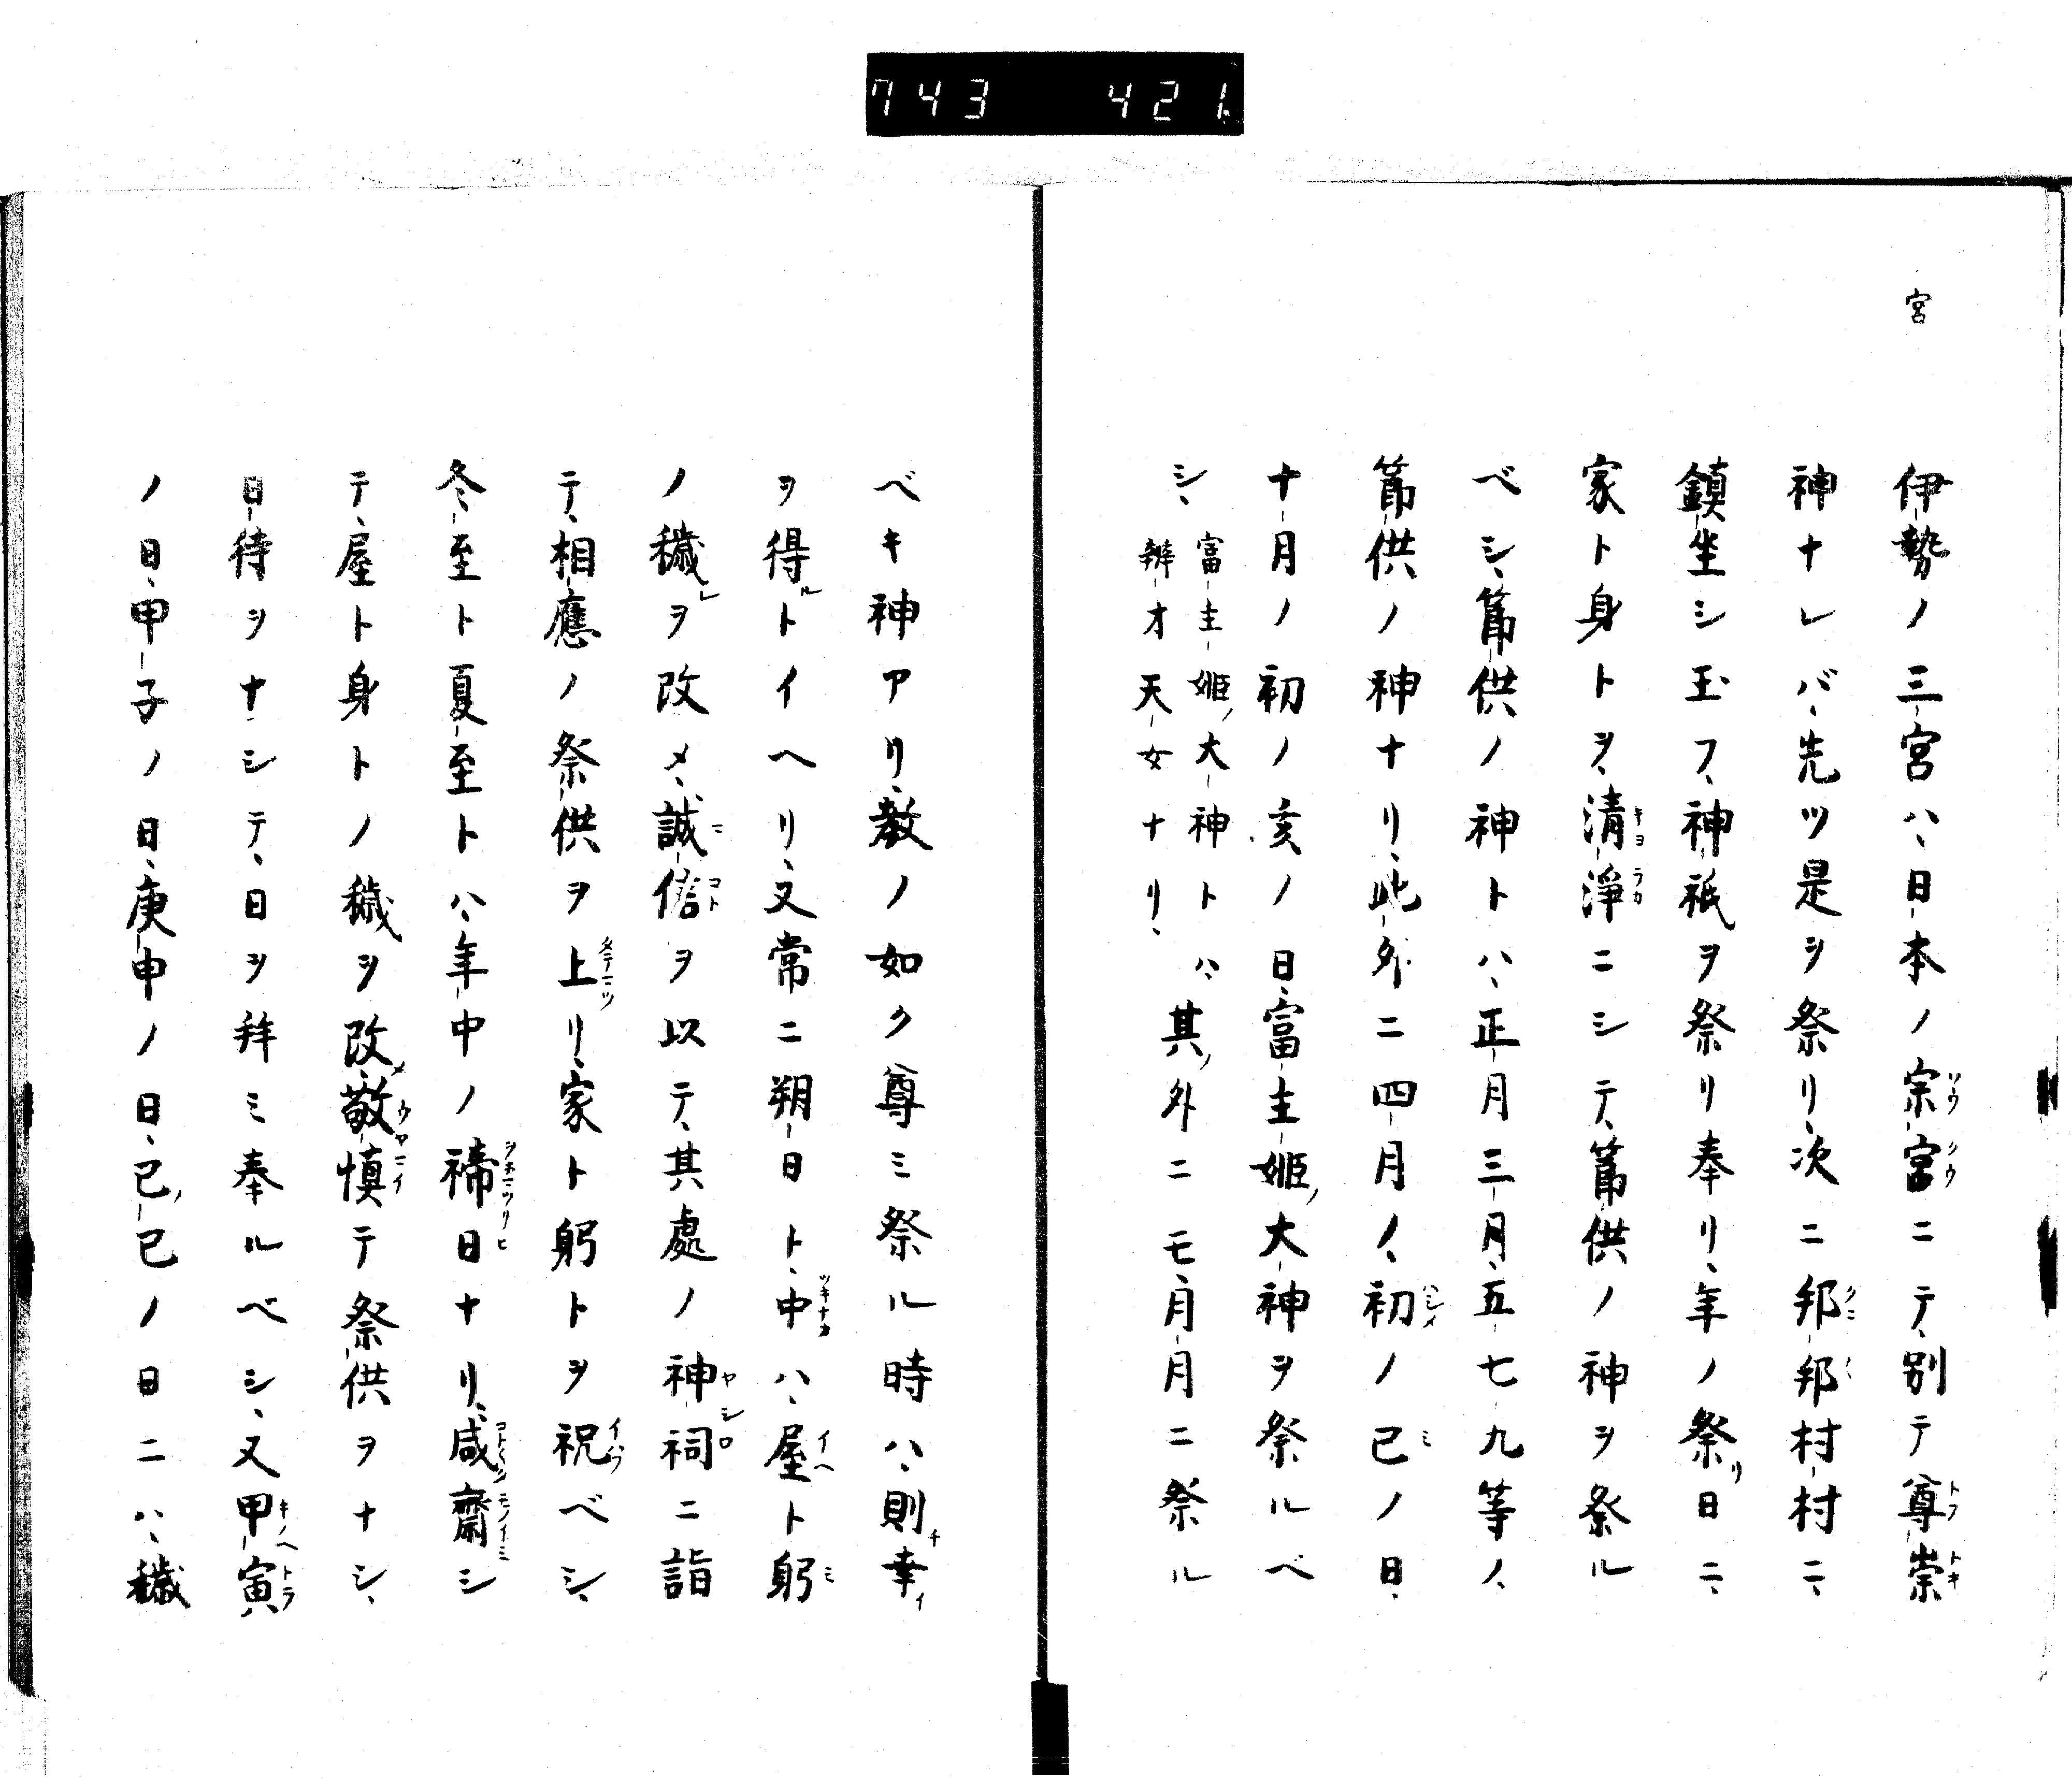 743 421
宮
伊勢ノ三宮ハ、日本ノ宗宮ニテ、別テ尊崇
神ナレバ、先ツ是ヲ祭リ、次ニ邦邦村村ニ、
鎮坐シ玉フ、神祇ヲ祭リ奉リ、年ノ祭リ日ニ、
家ト身トヲ、清淨ニシテ、篰供ノ神ヲ祭ル
ベシ、篰供ノ神トハ、正月三月、五七九等ノ、
篰供ノ神ナリ、此外ニ四月ノ、初ノ巳ノ日、
十月ノ初ノ亥ノ日、富主姫ノ大神ヲ祭ルベ
シ、富主姫ノ大神トハ、辨才天女ナリ、其ノ外ニモ、月月ニ祭ル
ベキ神アリ、教ノ如ク尊ミ祭ル時ハ、則チ幸イ
ヲ得ルトイヘリ、又常ニ朔日ト、中ハ、屋ト躬
ノ穢レヲ改メ、誠信ヲ以テ、其處ノ神祠ニ詣
テ、相應ノ祭供ヲ上リ、家ト躬トヲ祝ベシ、
冬至ト夏至トハ、年中ノ禘日ナリ、咸齋シ
テ、屋ト身トノ穢ヲ改メ、敬慎テ祭供ヲナシ、
日待ヲナシテ、日ヲ拜ミ奉ルベシ、又甲寅
ノ日、甲子ノ日、庚申ノ日、己ノ巳ノ日ニハ、穢